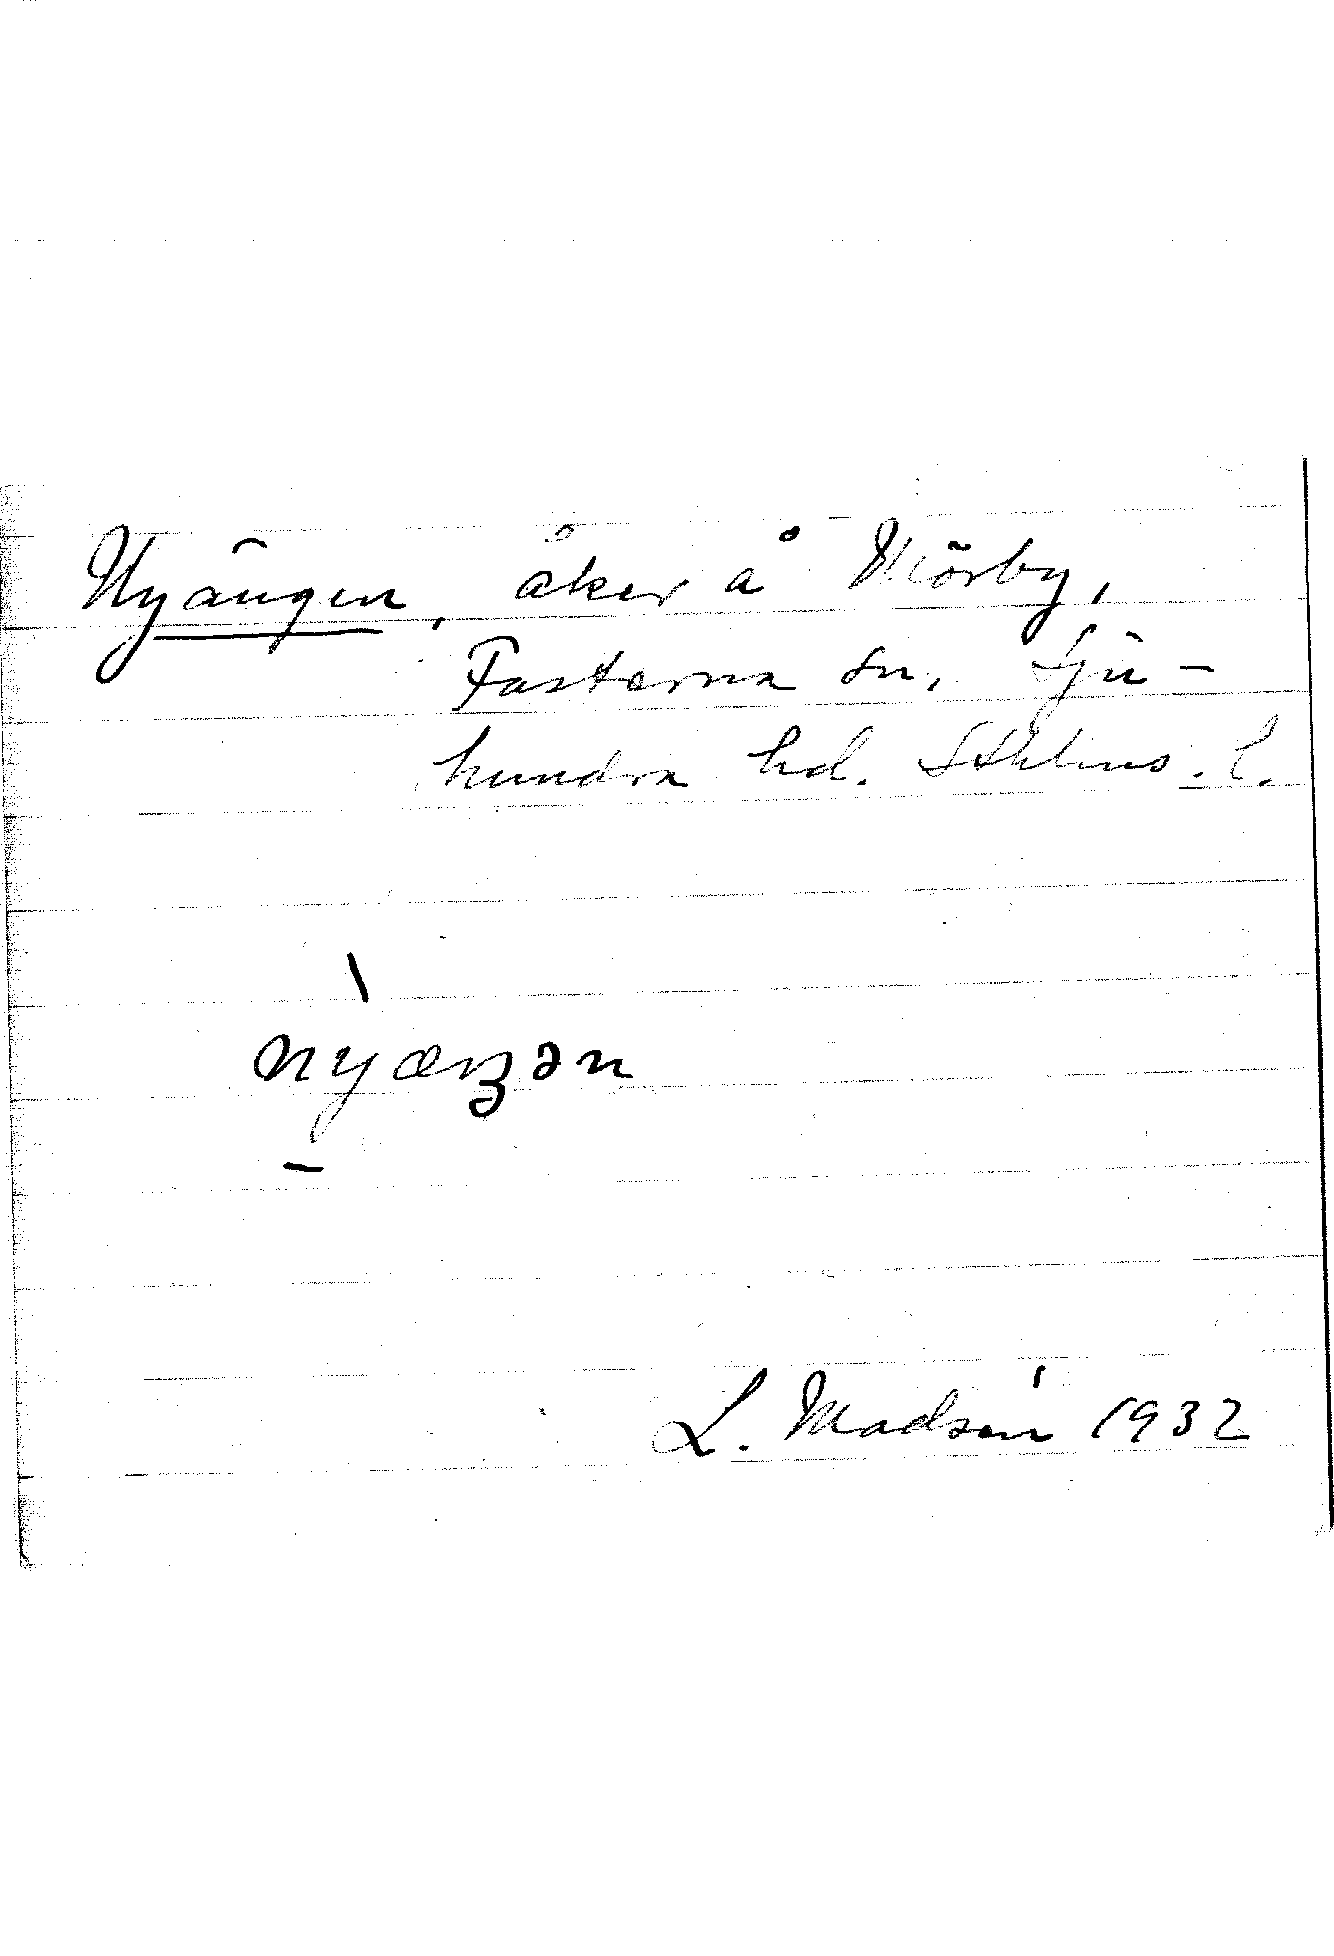 Nyängen, åker å Mörby,
Fasterna sn, Sju-
hundra hd. Sthlms. l.
nyæŋən
L. Madsén 1932